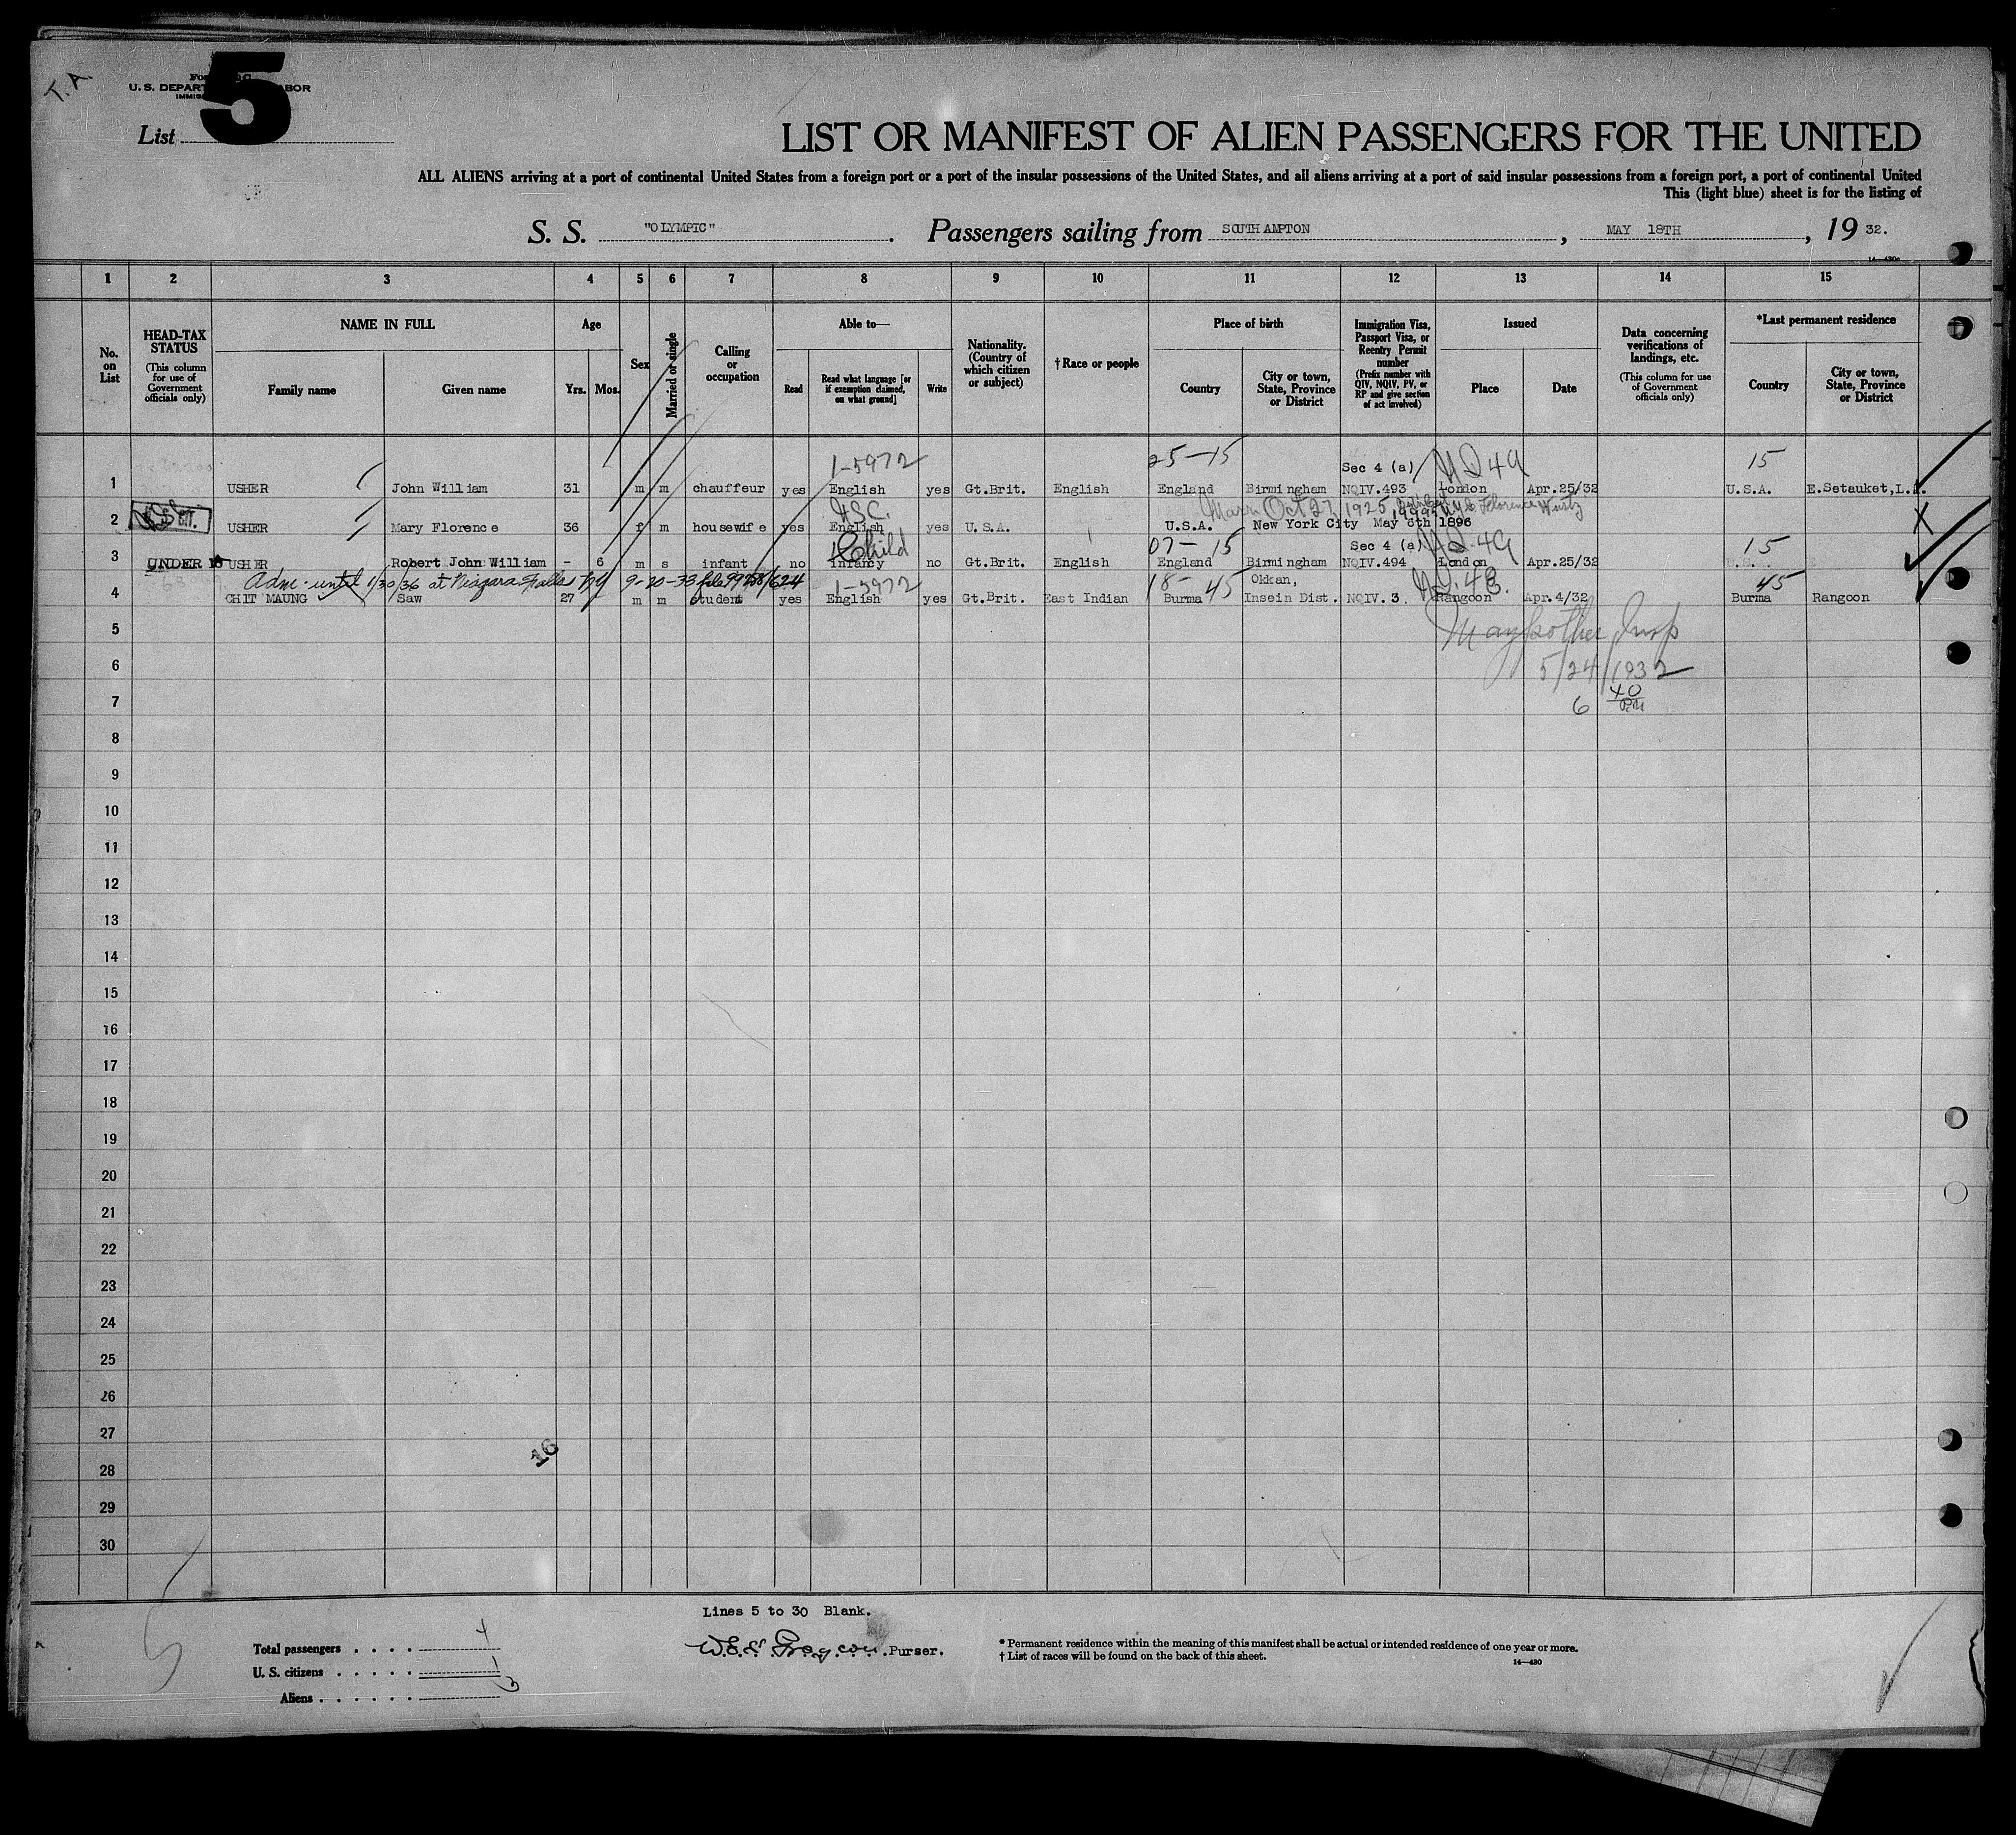 T.A
5
U. S. DEPART ABOR
List
LIST OR MANIFEST OF ALIEN PASSENGERS FOR THE UNITED
ALL ALIENS arriving at a port of continental United States from a foreign port or a port of the insular possessions of the United States, and all aliens arriving at a port of said insular possessions from a foreign port, a port of continental United
This (light blue) sheet is for the listing of
S. S. "OLYMPIC". Passengers sailing from SOUTHAMPTON, MAY 18TH, 19 32.
1 2 3 4 5 6 7 8 9 10 11 12 13 14 15
No. on List
HEAD-TAX STATUS
(This column for use of Government officials only)
NAME IN FULL
Family name Given name
Age
Yrs. Mos.
Sex
Married or single
Calling or occupation
Able to—
Read
Read what language [or if exemption claimed, on what ground]
Write
Nationality. (Country of which citizen or subject)
† Race or people
Place of birth
Country
City or town, State, Province or District
Immigration Visa, Passport Visa, or Reentry Permit number
(Prefix number with QIV, NQIV, PV, or RP and give section of act involved)
Issued
Place Date
Data concerning verifications of landings, etc.
(This column for use of Government officials only)
*Last permanent residence
Country
City or town, State, Province or District
1-5972 25-15 Sec 4 (a) 15
1 USHER John William 31 m m chauffeur yes English yes Gt.Brit. English England Birmingham NQIV.493 London Apr.25/32 U.S.A. E.Setauket,L.I.
Oct 27 1925
2 USHER Mary Florence 36 f m housewife yes English yes U.S.A. U.S.A. New York City May 6th 1896 X
Child 07-15 Sec 4 (a) 15
3 UNDER 16 USHER Robert John William - 6 m s infant no infancy no Gt.Brit. English England Birmingham NQIV.494 London Apr.25/32
Adm. until 1/30/36 at Niagara Falls NY 9-20-33 1-5972 18-45 Okkan, 45
4 CHIT MAUNG Saw 27 m m student yes English yes Gt.Brit. East Indian Burma Insein Dist. NQIV. 3 Rangoon Apr.4/32 Burma Rangoon
5
6 5/24/1932
7 6 40 PM
8
9
10
11
12
13
14
15
16
17
18
19
20
21
22
23
24
25
26
27
16
28
29
30
Lines 5 to 30 Blank.
Total passengers . . . . 4
U. S. citizens . . . . . 1
Aliens . . . . . . 3
Purser.
* Permanent residence within the meaning of this manifest shall be actual or intended residence of one year or more.
† List of races will be found on the back of this sheet.
14—430